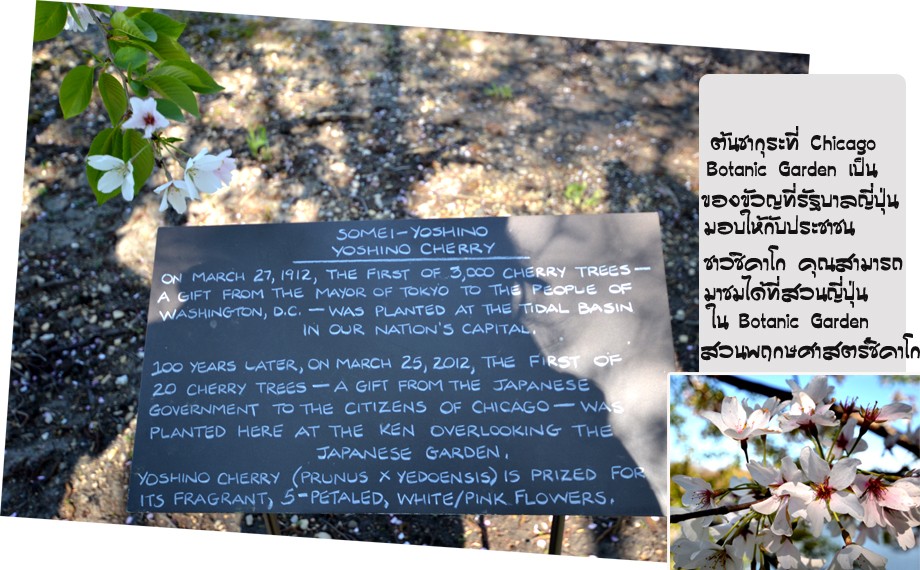 SOMEI-YOSHINO
YOSHINO CHERRY
ON MARCH 27, 1912, THE FIRST OF 3,000 CHERRY TREES —
A GIFT FROM THE MAYOR OF TOKYO TO THE PEOPLE OF
WASHINGTON, D.C. — WAS PLANTED AT THE TIDAL BASIN
IN OUR NATION'S CAPITAL.
100 YEARS LATER, ON MARCH 25, 2012, THE FIRST OF
20 CHERRY TREES — A GIFT FROM THE JAPANESE
GOVERNMENT TO THE CITIZENS OF CHICAGO — WAS
PLANTED HERE AT THE KEN OVERLOOKING THE
JAPANESE GARDEN.
YOSHINO CHERRY (PRUNUS X YEDOENSIS) IS PRIZED FOR
ITS FRAGRANT, 5-PETALED, WHITE/PINK FLOWERS.
ต้นซากุระที่ Chicago
Botanic Garden เป็น
ของขัวญที่รัฐบาลญี่ปุ่น
มอบให้กับประชาชน
ชาวชิคาโก คุณสามารถ
มาชมได้ที่สวนญี่ปุ่น
ใน Botanic Garden
สวนพฤกษศาสตร์ชิคาโก